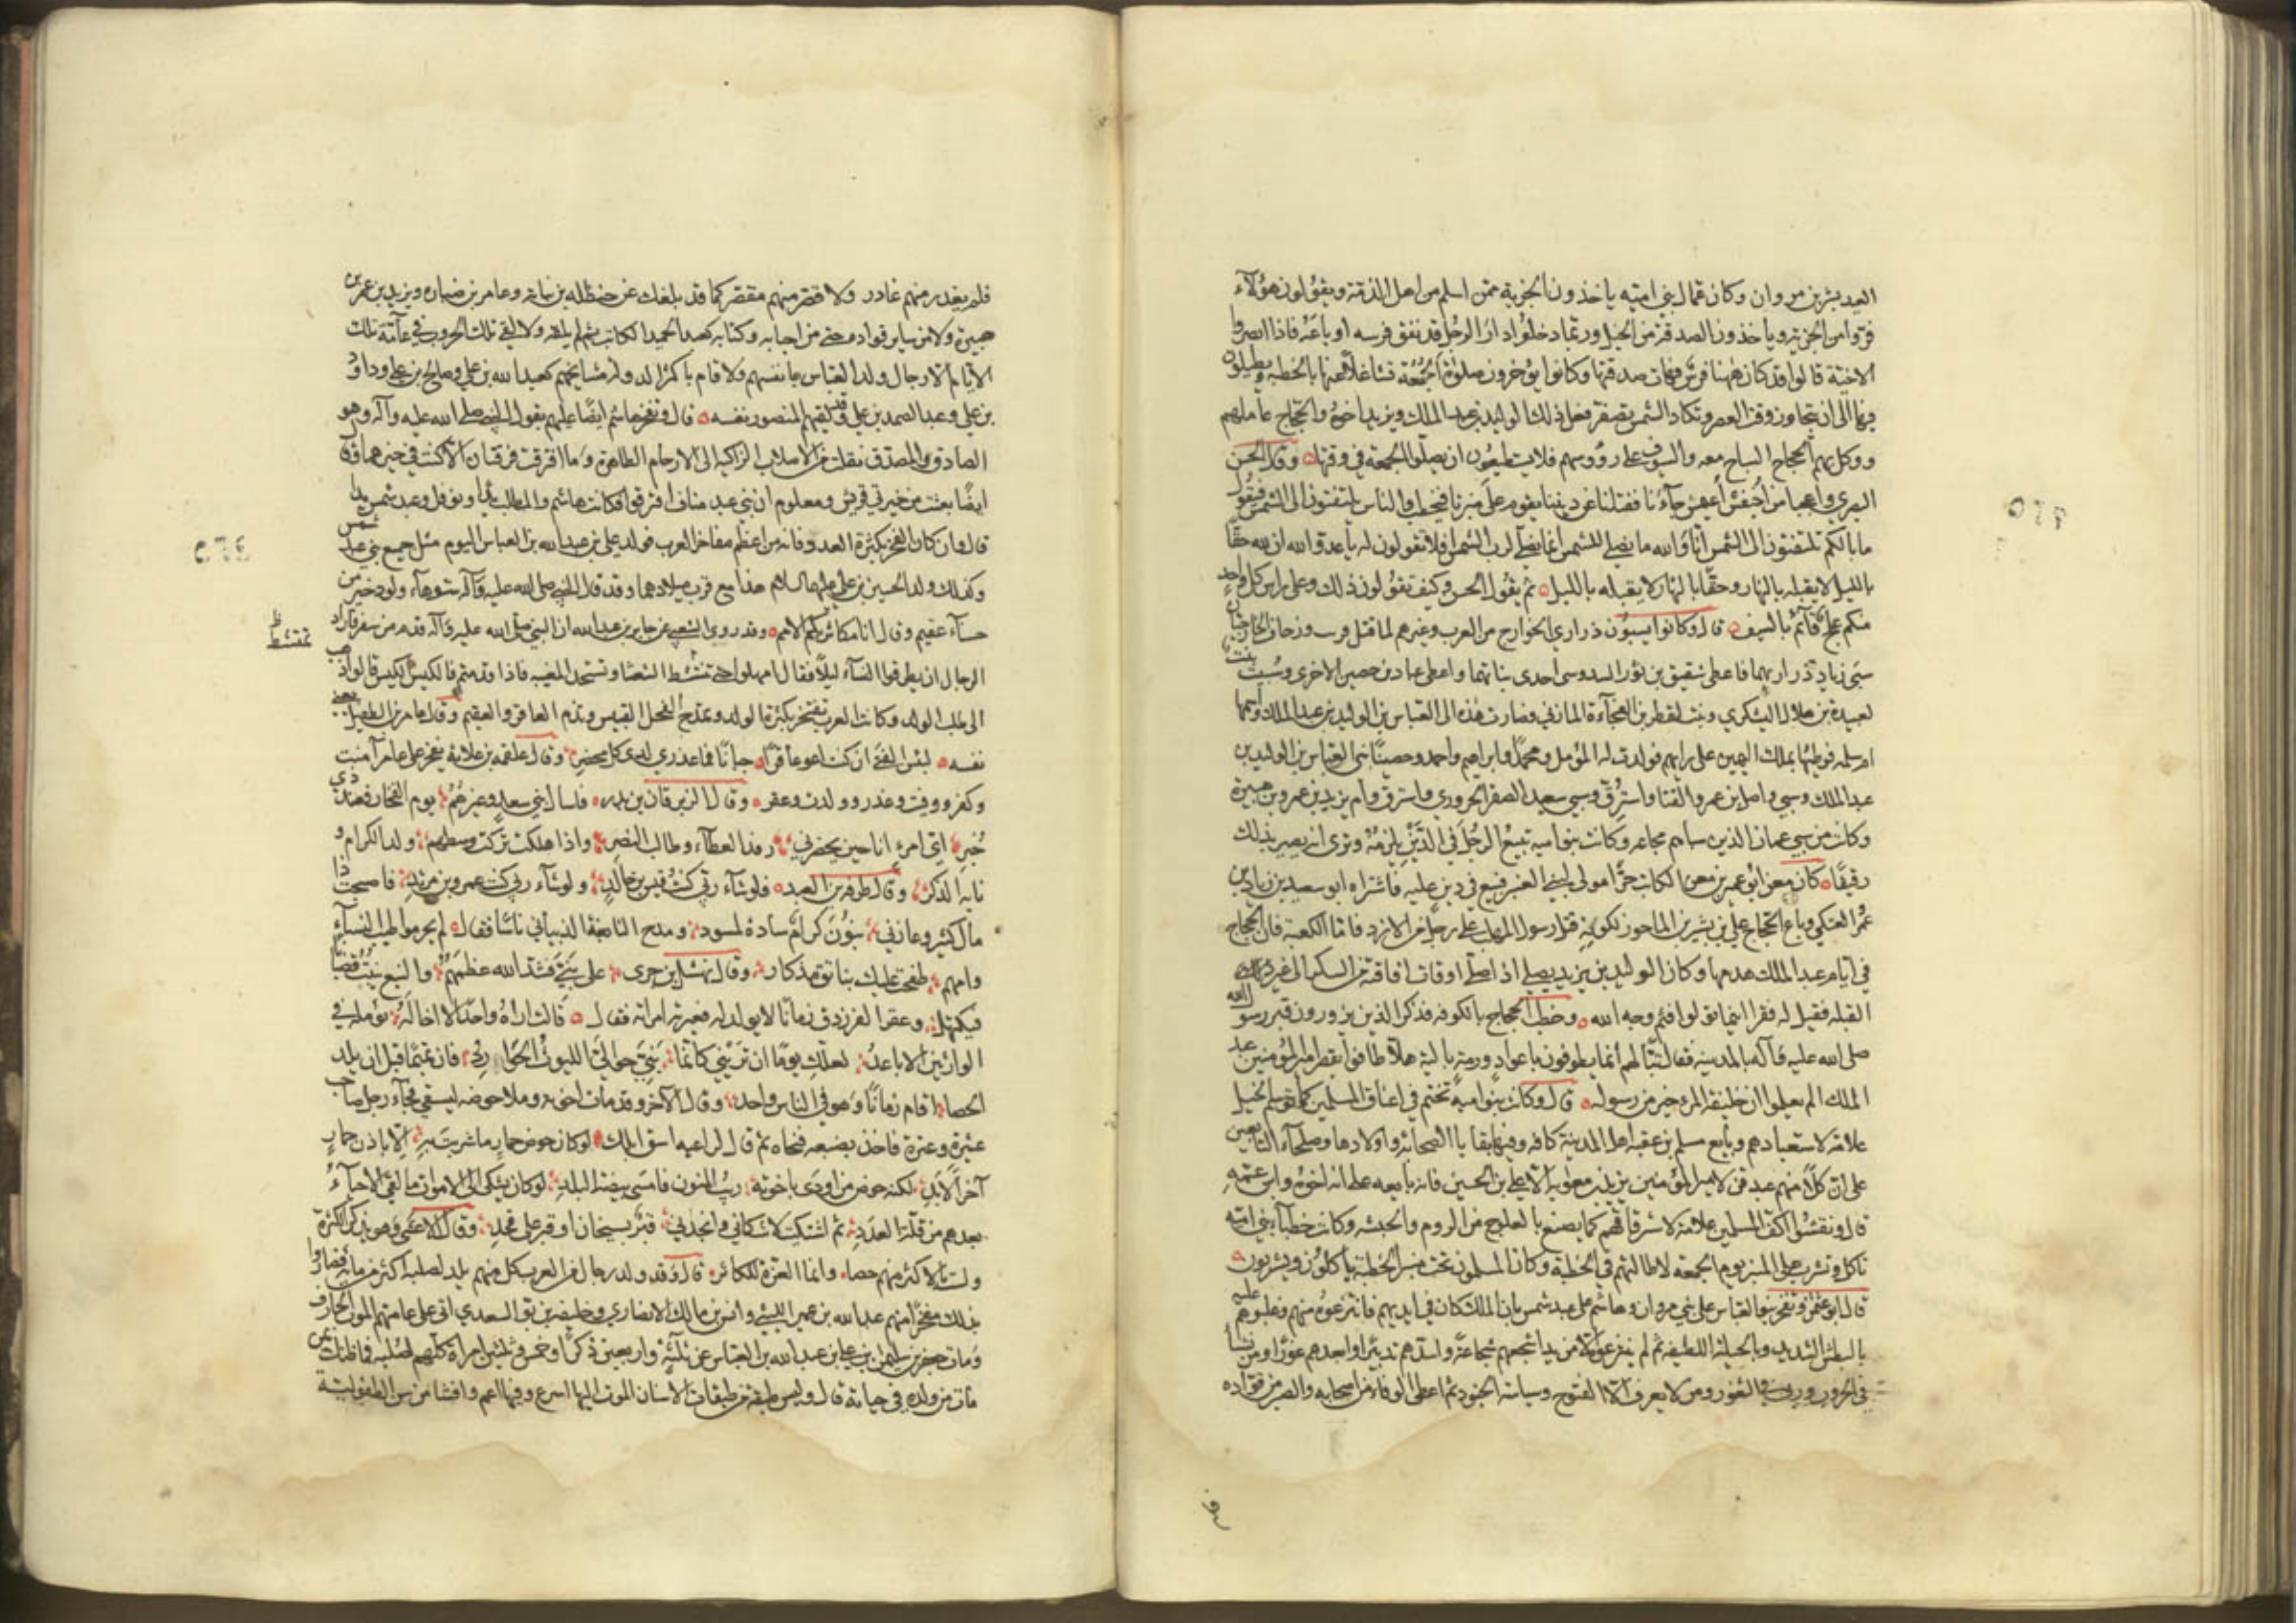 العهد بشر بن مروان وكان عمال بني امية يأخذون الجزية ممن اسلم من اهل الذمة ويقولون هؤلآء
فروا من الجزية ويأخذون الصدقة من الخيل وربما دخلوا دار الرجل قد نفق فرسه او باعه فاذا ابصروا
الاخية قالوا قد كان ههنا فرس فهات صدقتها وكانوا يؤخرون صلوة الجمعة تشاغلا عنها بالخطبة ويطيلون
فيها الى ان يتجاوز وقت العصر وتكاد الشمس تصفر فعل ذلك الوليد بن عبد الملك ويزيد اخوه والحجاج عاملهم
ووكل بهم الحجاج المسالح معه والسيوف على رؤوسهم فلا يستطيعون ان يصلوا الجمعة في وقتها وقال الحسن
البصري واعجبا من اخيفش اعيمش جآءنا ففتننا عن ديننا يقوم على منبرنا فيخطب والناس يلتفتون الى الشمس فيقول
ما بالكم تلتفتون الى الشمس انا والله ما نصلي للشمس انما نصلي لرب الشمس افلا تقولون له يا عدو الله ان لله حقا
بالليل لا يقبله بالنهار وحقا بالنهار لا يقبله بالليل ثم يقول الحسن وكيف تقولون ذلك وعلى راس كل واحد
منكم علج قآئم بالسيف قال وكانوا يسبون ذراري الخوارج من العرب وغيرهم لما قتل قريب وزحاف الخارجيان
سبى زياد ذراريهما فاعطى شقيق بن ثور السدوسي احدى بناتهما واعطى عباد بن حصين الاخرى وسبيت بنت
لعبيدة بن هلال اليشكري وبنت لقطري بن الفجآءة المازني فصارت هذه الى العباس بن الوليد بن عبد الملك واسمها
ام سلمه فوطئها بملك اليمين على رايهم فولدت له المؤمل ومحمدا وابراهيم واحمد وحصينا بني العباس بن الوليد بن
عبد الملك وسبي واصل بن عمرو القنا واسترق وسبي سعيد الصغير الحروري واسترق وام يزيد بن عمر بن هبيرة
وكانت من سبي عمان الذين سباهم مجاعه وكانت بنو اميه تبيع الرجل في الدين يلزمه وترى انه يصير بذلك
رقيقا كان معن ابو عمير بن معن الكاتب حرا مولى لبني العنبر فبيع في دين عليه فاشتراه ابو سعيد بن زياد بن
عمرو العتكي وباع الحجاج علي بن بشير بن الماحوز لكونه قتل رسول المهلب على رجل من الازد فاما الكعبة فان الحجاج
في ايام عبد الملك هدمها وكان الوليد بن يزيد يصلي اذا صلى اوقات افاقته من السكر الى غير
القبلة فقيل له فقرا اينما تولوا فثم وجه الله وخطب الحجاج بالكوفه فذكر الذين يزورون قبر رسول الله
صلى الله عليه وآله بالمدينه فقال تبا لهم انما يطوفون باعواد ورمة بالية هلا طافوا بقصر امير المؤمنين عبد
الملك الم يعلموا ان خليفة المرء خير من رسوله قال وكانت بنوامية تختم في اعناق المسلمين كما توسم الخيل
علامة لاستعبادهم وبايع مسلم بن عقبه اهل المدينة كافه وفيها بقايا الصحابة واولادها وصلحآء التابعين
على ان كلا منهم عبد قن لامير المؤمنين يزيد بن معوية الا علي بن الحسين فانه بايعه على انه اخوه وابن عمه
قال ونقشوا اكف المسلمين علامة لاسترقاقهم كما يصنع بالعلوج من الروم والحبشه وكانت خطبآء بني امية
تاكل وتشرب على المنبر يوم الجمعه لاطالتهم في الخطبة وكان المسلمون تحت منبر الخطبة ياكلون ويشربون
قال ابو عثمن وتفخر بنو العباس على بني مروان وهاشم على عبد شمس بان الملك كان في ايديهم فانتزعوه منهم وغلبوهم عليه
بالبطش الشديد وبالحيلة اللطيفه ثم لم ينزعوه الا من يد اشجعهم شجاعة واشدهم تدبيرا وابعدهم غورا ومن نشأ
في الحروب وربي في الثغور ومن لا يعرف الا الفتوح وسياسة الجنود ثم اعطى الوفاء من اصحابه والصبر من قواده
فلم يغدر منهم غادر ولا قصر منهم مقصر كما قد بلغك عن حنظلة بن نباته وعامر بن ضباره ويزيد بن عمر بن
هبيرة ولا من ساير قواده حتى من احبابه وكتابه كعبد الحميد الكاتب ثم لم يلقه ولا لقي تلك الحروب في عآمة تلك
الايام الا رجال ولد العباس بانفسهم ولا قام باكثر الدولة مشايخهم كعبد الله بن علي وصالح بن علي وداود
بن علي وعبد الصمد بن علي وقد لقيهم المنصور نفسه قال وتفخر هاشم ايضا عليهم بقول النبي صلى الله عليه وآله وهو
الصادق المصدق نقلت من الاصلاب الزاكيه الى الارحام الطاهرة وما افترقت فرقتان الا كنت في خيرهما وقال
ايضا بعثت من خيرتي قريش ومعلوم ان بني عبد مناف افترقوا فكانت هاشم والمطلب يدا ونوفل وعبد شمس يدا
قال وان كان الفخر بكثرة العدد فانه من اعظم مفاخر العرب فولد علي بن عبد الله بن العباس اليوم مثل جميع بني عبد شمس
وكذلك ولد الحسين بن علي عليهما السلام هذا مع قرب ميلادهما وقد قال النبي صلى الله عليه وآله شوهآء ولود خير من
حسنآء عقيم وقال انا مكاثر بكم الامم وقد روى الشعبي عن جابر بن عبد الله ان النبي صلى الله عليه وآله قدم من سفر فاراد
تمتشط ظ
الرجال ان يطرقوا النسآء ليلا فقال امهلوا حتى تمتشط الشعثا وتستحد المغيبه فاذا قدمتم فالكيس الكيس قالوا ذهب
الى طلب الولد وكانت العرب تفتخر بكثرة الولد وتمدح الفحل القبيس وتذم العاقر والعقيم وقال عامر بن الطفيل يعني
نفسه لبئس الفتى ان كنت اعور عاقرا جبانا فما عذري لدى كل محضر وقال علقمه بن علاثة يفخر على عامر آمنت
وكفر ووفيت وغدر وولدت وعقر وقال الزبرقان بن بدر فاسأل بني سعد وغيرهم يوم الفخار فعندهم
خبري اي امرئ انا حين يحضرني رفد العطآء وطالب النصر واذا هلكت تركت وسطهم ولد الكرام و
نابه الذكر وقال طرفه بن العبد فلو شآء ربي كنت قيس بن خالد ولو شآء ربي كنت عمرو بن مرثد فاصبحت ذا
مال كثير وعادني بنون كرام سادة لمسود ومدح النابغة الذبياني ناسا فقال لم يحرموا طيب النسآء
وامهم طفحت عليك بناتق مذكار وقال نهشل بن حرى على بني يشد الله عظمهم والنبع ينبت قضبانا
فيكتهل وعقر الفرزدق زمانا لا يولد له فعيرته امراته فقال قالت اراه واحدا لا اخا له يؤمله في
الوارثين الاباعد لعلك يوما ان تريني كانما بني حوالي الليوث الحوارد فان تميما قبل ان يلد
الحصا اقام زمانا وهو في الناس واحد وقال الآخر وقد مات اخوته وملا حوضه ليسقي فجآء رجل صاحب
عشيرة وعترة فاخذ بضبعه فنحاه ثم قال لراعيه اسق ابلك لو كان حوض حمار ما شربت به الا باذن حمار
آخر الابد لكنه حوض من اودى باخوته ريب المنون فامسى بيضة البلد لو كان يشكى الى الاموات ما لقي الاحيآء
بعدهم من قلة العدد ثم اشتكيت لاشكاني وانجدني قبر بسنجار او قبر على قهد وقال الاعشى وهو يذكر الكثرة
ولست بالاكثر منهم حصا وانما العزة للكاثر قال وقد ولد رجال من العرب كل منهم يلد لصلبه اكثر من مائة فصاروا
بذلك مفخرا منهم عبد الله بن عمير الليثي وانس بن مالك الانصاري وخليفه بن بو السعدي اتى على عامتهم الموت الجارف
ومات جعفر بن سليمن بن علي بن عبد الله بن العباس عن ثلثة واربعين ذكرا وخمس وثلثين امراة كلهم لصلبه فما ظنك بمن
مات من ولده في حياته قال وليس طبقة من طبقات الاسنان الموت اليها اسرع وفيها اعم وافشا من سن الطفولية